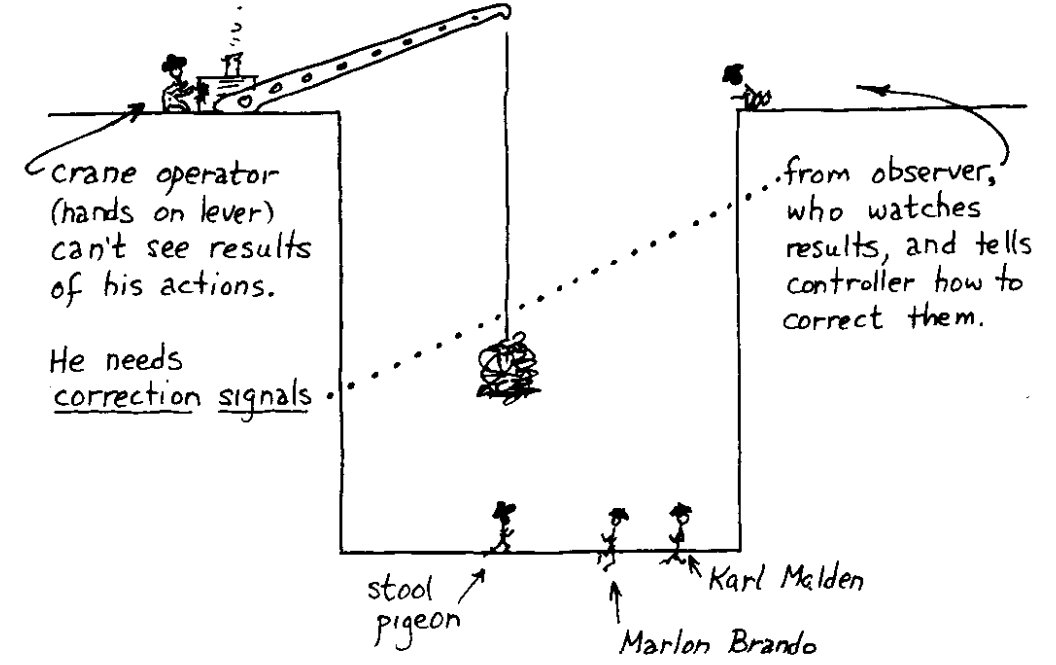 crane operator
(hands on lever)
can't see results
of his actions.
He needs
correction signals
from observer,
who watches
results, and tells
controller how to
correct them.
stool
pigeon
Marlon Brando
Karl Malden